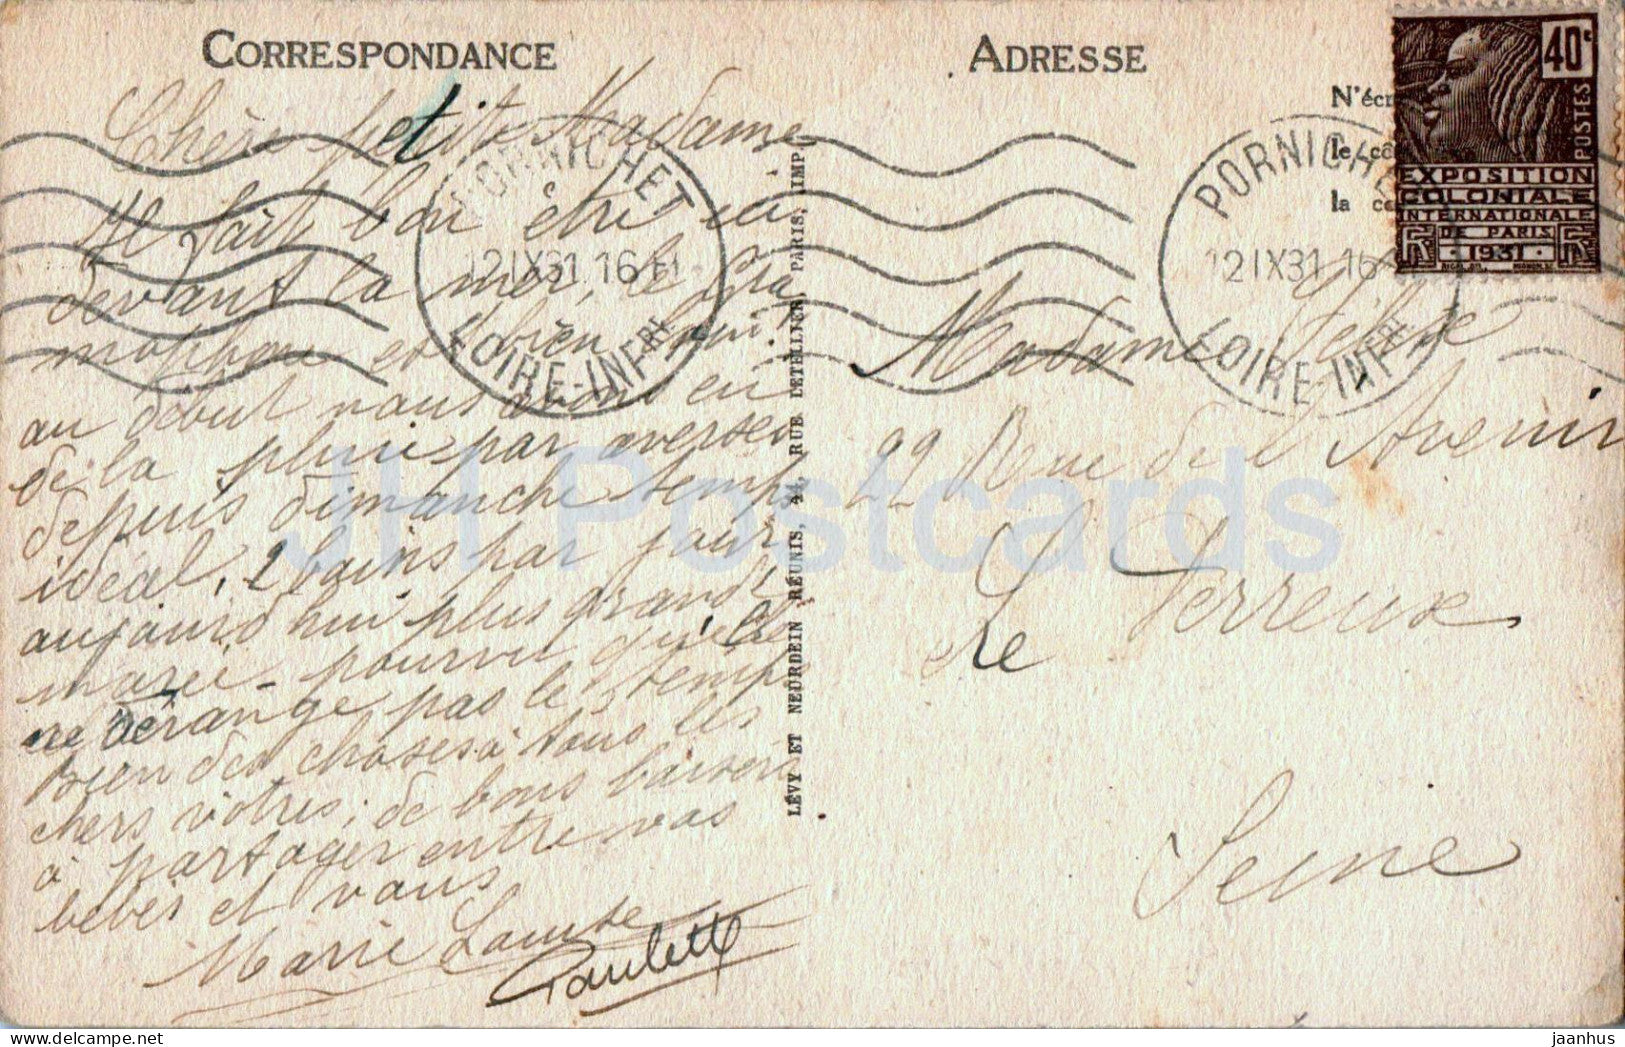 CORRESPONDANCE
Chère petite Madame
Il fait bon être ici
devant la mer, le Gra
mophon est bien, oui,
au début nous avons eu
de la pluie par averses
depuis dimanche temps
idéal, 2 bains par jour
aujourd'hui plus grande
marée - pourvu qu'elle
ne dérange pas le temps
Bien des choses à tous les
chers vôtres; de bons baisers
à partager entre vos
bébés et vous
Marie Louise
Paulette
LÉVY ET NEURDEIN RÉUNIS, 44, RUE LETELLIER, PARIS, IMP.
PORNICHET
12 IX 31 16
LOIRE-INFRE
ADRESSE
N'écr
le cô
la co
PORNICHE
12 IX 31 16
LOIRE-INFRE
40c
POSTES
EXPOSITION
COLONIALE
INTERNATIONALE
DE PARIS
1931
Madame
22 Rue de l'Avenir
Le Perreux
Seine
JH Postcards
jaanhus